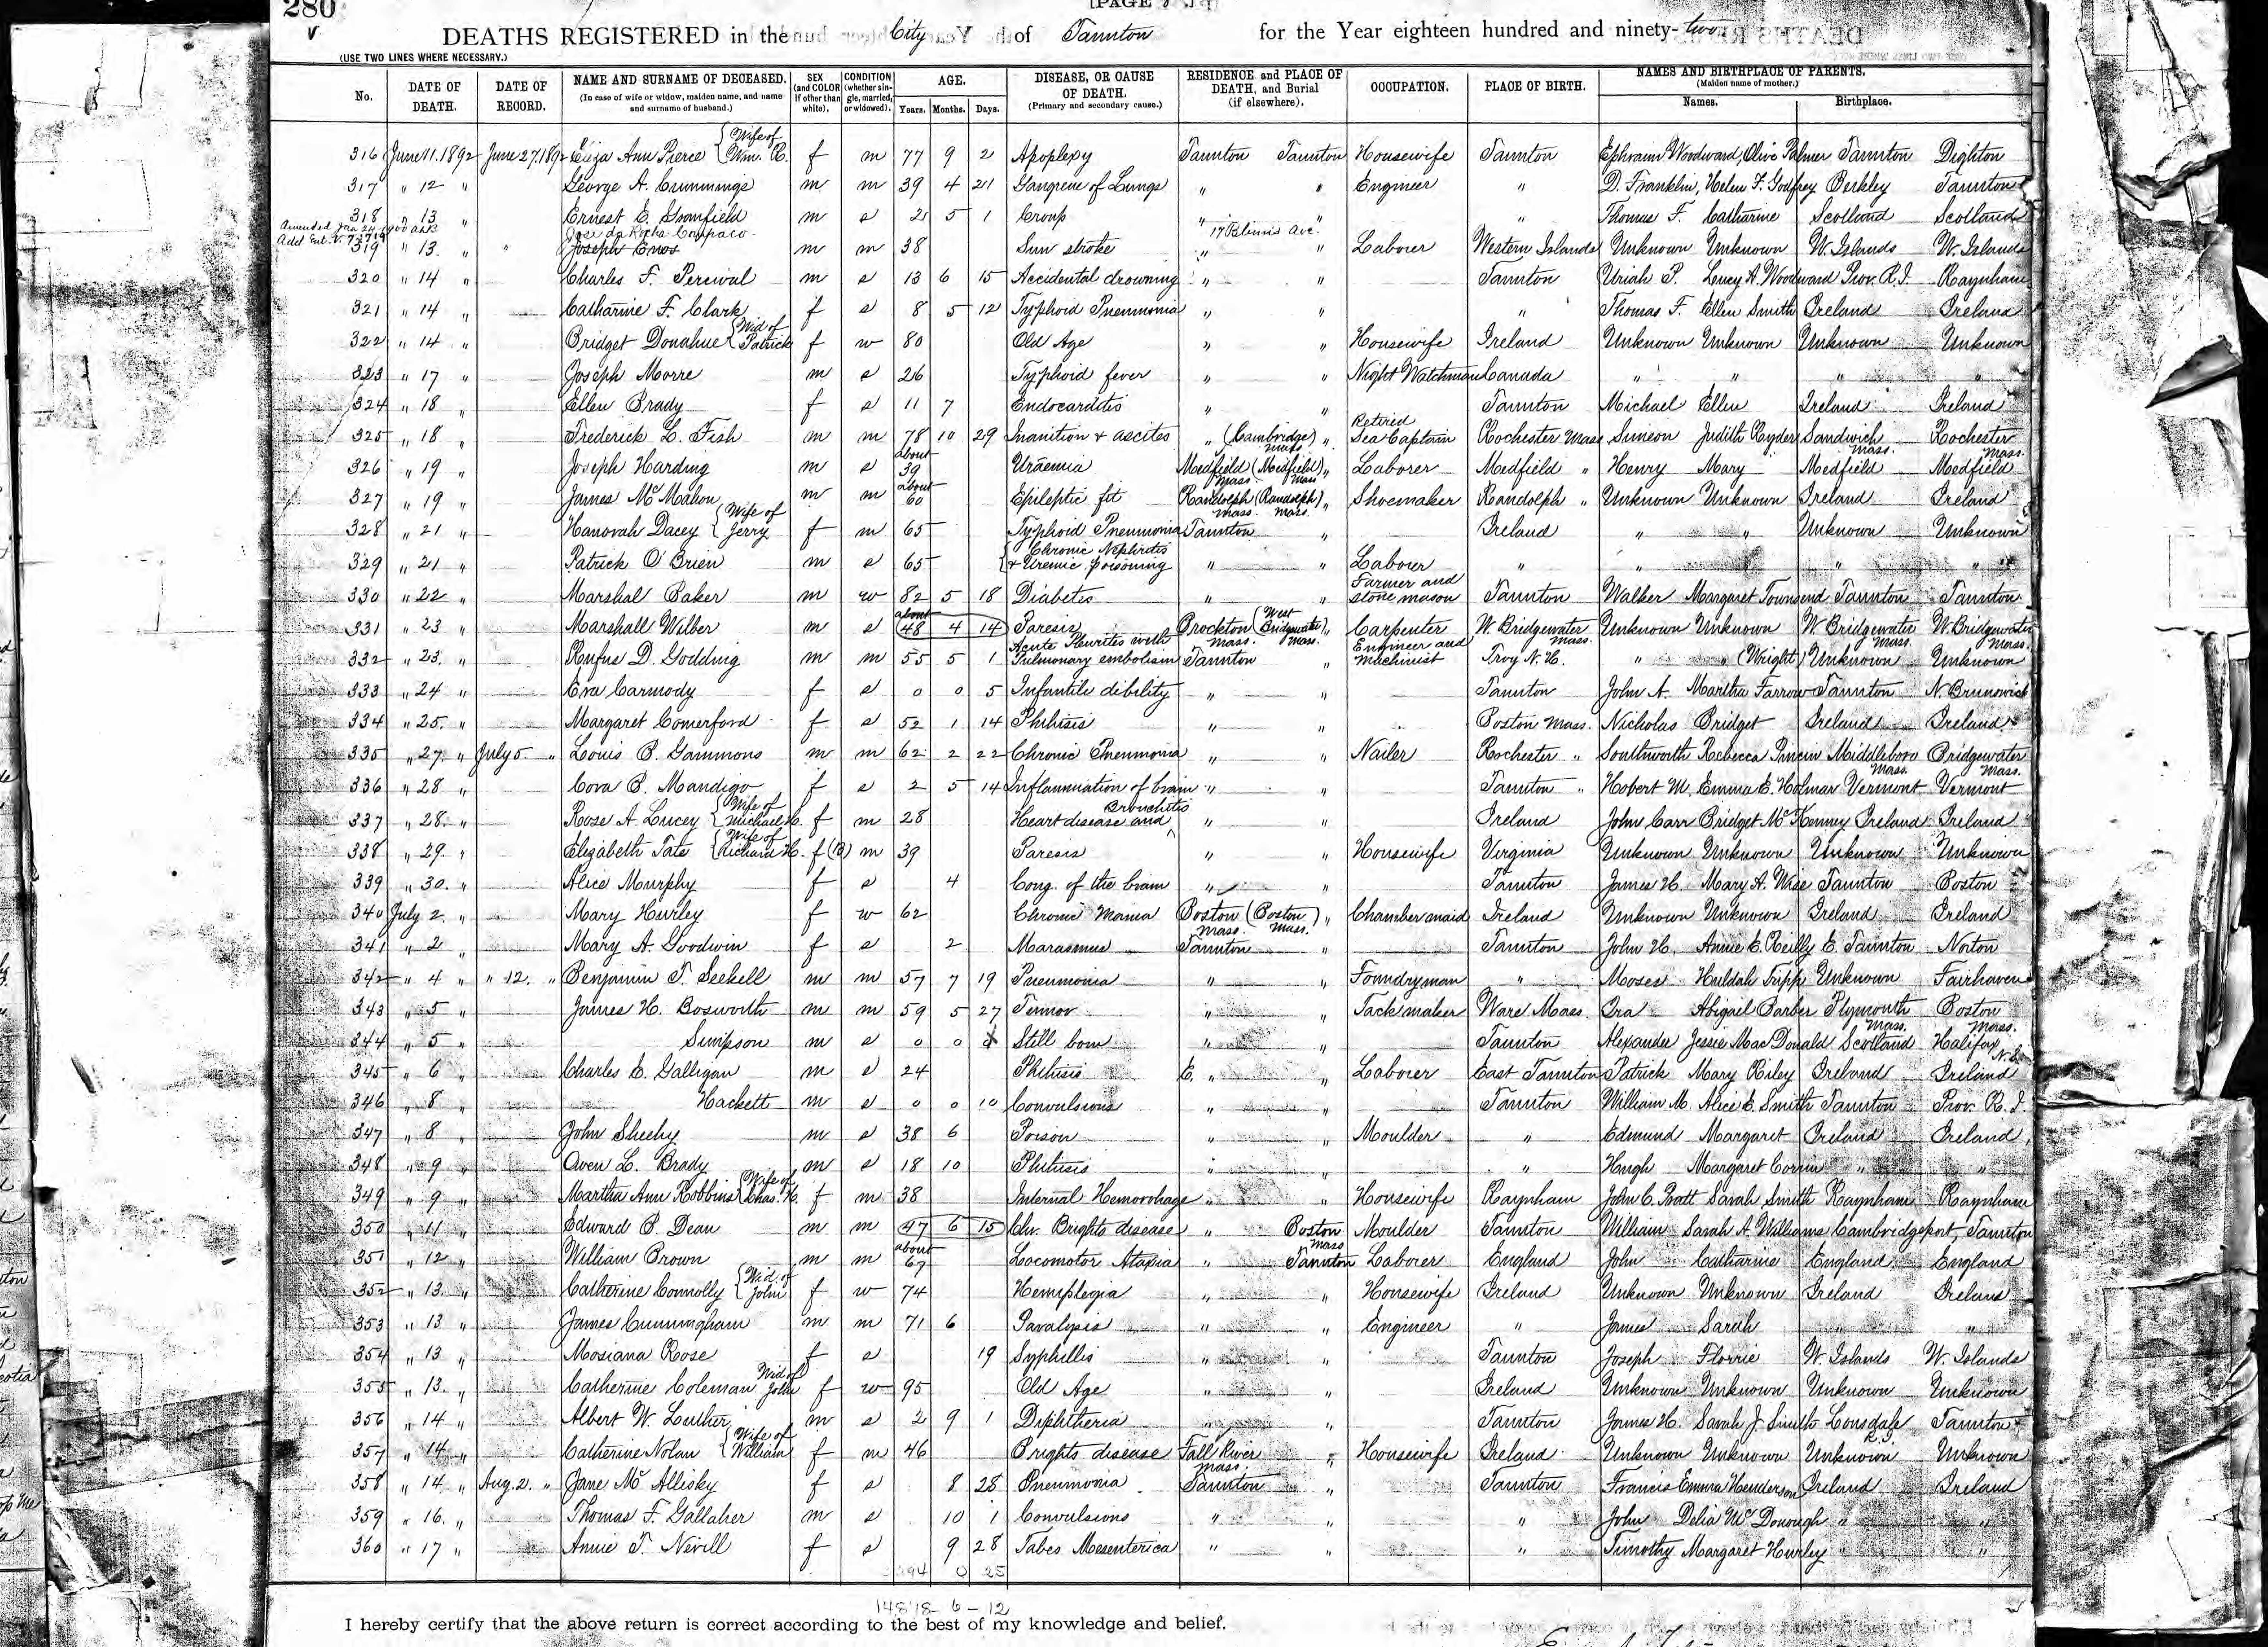 280
DEATHS REGISTERED in the City of Taunton for the Year eighteen hundred and ninety-two
(USE TWO LINES WHERE NECESSARY.)
No. DATE OF DEATH. DATE OF RECORD. NAME AND SURNAME OF DECEASED. (In case of wife or widow, maiden name, and name and surname of husband.) SEX (and COLOR if other than white). CONDITION (whether single, married, or widowed). AGE. Years. Months. Days. DISEASE, OR CAUSE OF DEATH. (Primary and secondary cause.) RESIDENCE and PLACE OF DEATH, and Burial (if elsewhere). OCCUPATION. PLACE OF BIRTH. NAMES AND BIRTHPLACE OF PARENTS. (Maiden name of mother.) Names. Birthplace.
316 June 11. 1892 June 27. 1892 Eliza Ann Pierce {Wife of Wm. R. f m 77 9 2 Apoplexy Taunton Taunton Housewife Taunton Ephraim Woodward, Olive Palmer Taunton Dighton
317 " 12 " George A. Cummings m m 39 4 21 Gangrene of Lungs " " Engineer " D. Franklin, Helen F. Godfrey Berkley Taunton
318 " 13 " Ernest E. m s 2 5 1 Croup " " " Thomas F. Catharine Scotland Scotland
Amended Jan 24 1900
Jose da Rocha 17 Ave.
319 " 13. " " Joseph Enos m m 38 Sun stroke " " Laborer Western Islands Unknown Unknown W. Islands W. Islands
320 " 14 " Charles F. Percival m s 13 6 15 Accidental drowning " " Taunton Uriah P. Lucy A. Woodward Prov. R.I. Raynham
321 " 14 " Catharine F. Clark f s 8 5 12 Typhoid Pneumonia " " " Thomas F. Ellen Smith Ireland Ireland
322 " 14 " Bridget Donahue {Wid of Patrick f w 80 Old Age " " Housewife Ireland Unknown Unknown Unknown Unknown
323 " 17 " Joseph Morre m s 26 Typhoid fever " " Night Watchman Canada " " " "
324 " 18 " Ellen Brady f s 11 7 Endocarditis " " Taunton Michael Ellen Ireland Ireland
325 " 18 " Frederick L. Fish m m 78 10 29 Inanition & ascites " (Cambridge) Mass. " Retired Sea Captain Rochester Mass Simeon Judith Ryder Sandwich Mass. Rochester Mass.
326 " 19 " Joseph Harding m s about 39 Uræmia Medfield Mass (Medfield) Mass " Laborer Medfield " Henry Mary Medfield Medfield
327 " 19 " James McMahon m m about 60 Epileptic fit Randolph Mass. (Randolph) Mass. " Shoemaker Randolph " Unknown Unknown Ireland Ireland
328 " 21 " Hanorah Dacey {Wife of Jerry f m 65 Typhoid Pneumonia Taunton " Ireland " " Unknown Unknown
329 " 21 " Patrick O'Brien m s 65 {Chronic Nephritis & Uremic poisoning " " Laborer " " " " "
330 " 22 " Marshal Baker m w 82 5 18 Diabetes " " Farmer and stone mason Taunton Walker Margaret Townsend Taunton Taunton
331 " 23 " Marshall Wilber m s about 48 4 14 Paresis Brockton Mass. (West Bridgewater) Mass. " Carpenter W. Bridgewater Mass. Unknown Unknown W. Bridgewater Mass. W. Bridgewater Mass.
332 " 23. " Rufus D. Godding m m 55 5 1 Acute Pleuritis with Pulmonary embolism Taunton " Engineer and Machinist Troy N.H. " " (Wright) Unknown Unknown
333 " 24 " Eva Carmody f s 0 0 5 Infantile dibility " " Taunton John A. Martha Farrow Taunton N. Brunswick
334 " 25. " Margaret Comerford f s 52 1 14 Phthisis " " Boston Mass. Nicholas Bridget Ireland Ireland
335 " 27. " July 5. " Louis B. Gammons m m 62 2 22 Chronic Pneumonia " " Nailer Rochester " Southworth Rebecca Middleboro Mass. Bridgewater Mass.
336 " 28 " Cora B. Mandigo f s 2 5 14 Inflammation of brain " " Taunton " Hobert M. Emma E. Holman Vermont Vermont
337 " 28. " Rose A. Lucey {Wife of Michael H. f m 28 Heart disease and Bronchitis " " Ireland John Carr Bridget McKenney Ireland Ireland
338 " 29. " Elizabeth Tate {Wife of Richard H. f (B) m 39 Paresis " " Housewife Virginia Unknown Unknown Unknown Unknown
339 " 30. " Alice Murphy f s 4 Cong. of the brain " " Taunton James H. Mary A. Wise Taunton Boston
340 July 2. " Mary Hurley f w 62 Chronic Mania Boston Mass. (Boston Mass.) " Chambermaid Ireland Unknown Unknown Ireland Ireland
341 " 2 " Mary A. Goodwin f s 2 Marasmus Taunton " Taunton John H. Annie E. Reilly E. Taunton Norton
342 " 4 " " 12. " Benjamin T. Seekell m m 57 7 19 Pneumonia " " Foundryman " Moses Huldah Tripp Unknown Fairhaven
343 " 5 " James H. Bosworth m m 59 5 27 " " Tack maker Ware Mass. Ira Abigail Barber Plymouth Mass. Boston Mass.
344 " 5 " Simpson m s 0 0 Still born " " Taunton Alexander Jessie MacDonald Scotland Halifax N.S.
345 " 6 " Charles E. Galligan m s 24 Phthisis E. " " Laborer East Taunton Patrick Mary Riley Ireland Ireland
346 " 8 " Hackett m s 0 0 10 Convulsions " " Taunton William M. Alice E. Smith Taunton Prov. R.I.
347 " 8 " John Sheehy m s 38 6 Poison " " Moulder " Edmund Margaret Ireland Ireland
348 " 9 " Owen L. Brady m s 18 10 Phthisis " " " Hugh Margaret Corrin " "
349 " 9 " Martha Ann Robbins {Wife of Chas. H. f m 38 Internal Hemorrhage " " Housewife Raynham John C. Pratt Sarah Smith Raynham Raynham
350 " 11 " Edward B. Dean m m 47 6 15 Chr. Brights disease " Boston Mass Moulder Taunton William Sarah A. Williams Cambridgeport, Taunton
351 " 12 " William Brown m m about 67 Locomotor Ataxia " Taunton Laborer England John Catharine England England
352 " 13. " Catherine Connolly {Wid. of John f w 74 Hemiplegia " " Housewife Ireland Unknown Unknown Ireland Ireland
353 " 13 " James Cunningham m m 71 6 Paralysis " " Engineer " James Sarah " "
354 " 13 " Mosiana Rose f s 19 Syphillis " " Taunton Joseph Florrie W. Islands W. Islands
355 " 13. " Catherine Coleman Wid of John f w 95 Old Age " " Ireland Unknown Unknown Unknown Unknown
356 " 14 " Albert W. Luther m s 2 9 1 Diphtheria " " Taunton James H. Sarah J. Smith Lonsdale R.I. Taunton
357 " 14 " Catherine Nolan {Wife of William f m 46 Brights disease Fall River Mass. " Housewife Ireland Unknown Unknown Unknown Unknown
358 " 14 " Aug. 2. " Jane McAllisky f s 8 28 Pneumonia Taunton " Taunton Francis Emma Henderson Ireland Ireland
359 " 16. " Thomas F. Gallaher m s 10 1 Convulsions " " " John Delia McDonough " "
360 " 17 " Annie T. Nevill f s 9 28 Tabes Mesenterica " " " Timothy Margaret Hurley " "
0 25
6-12
I hereby certify that the above return is correct according to the best of my knowledge and belief.